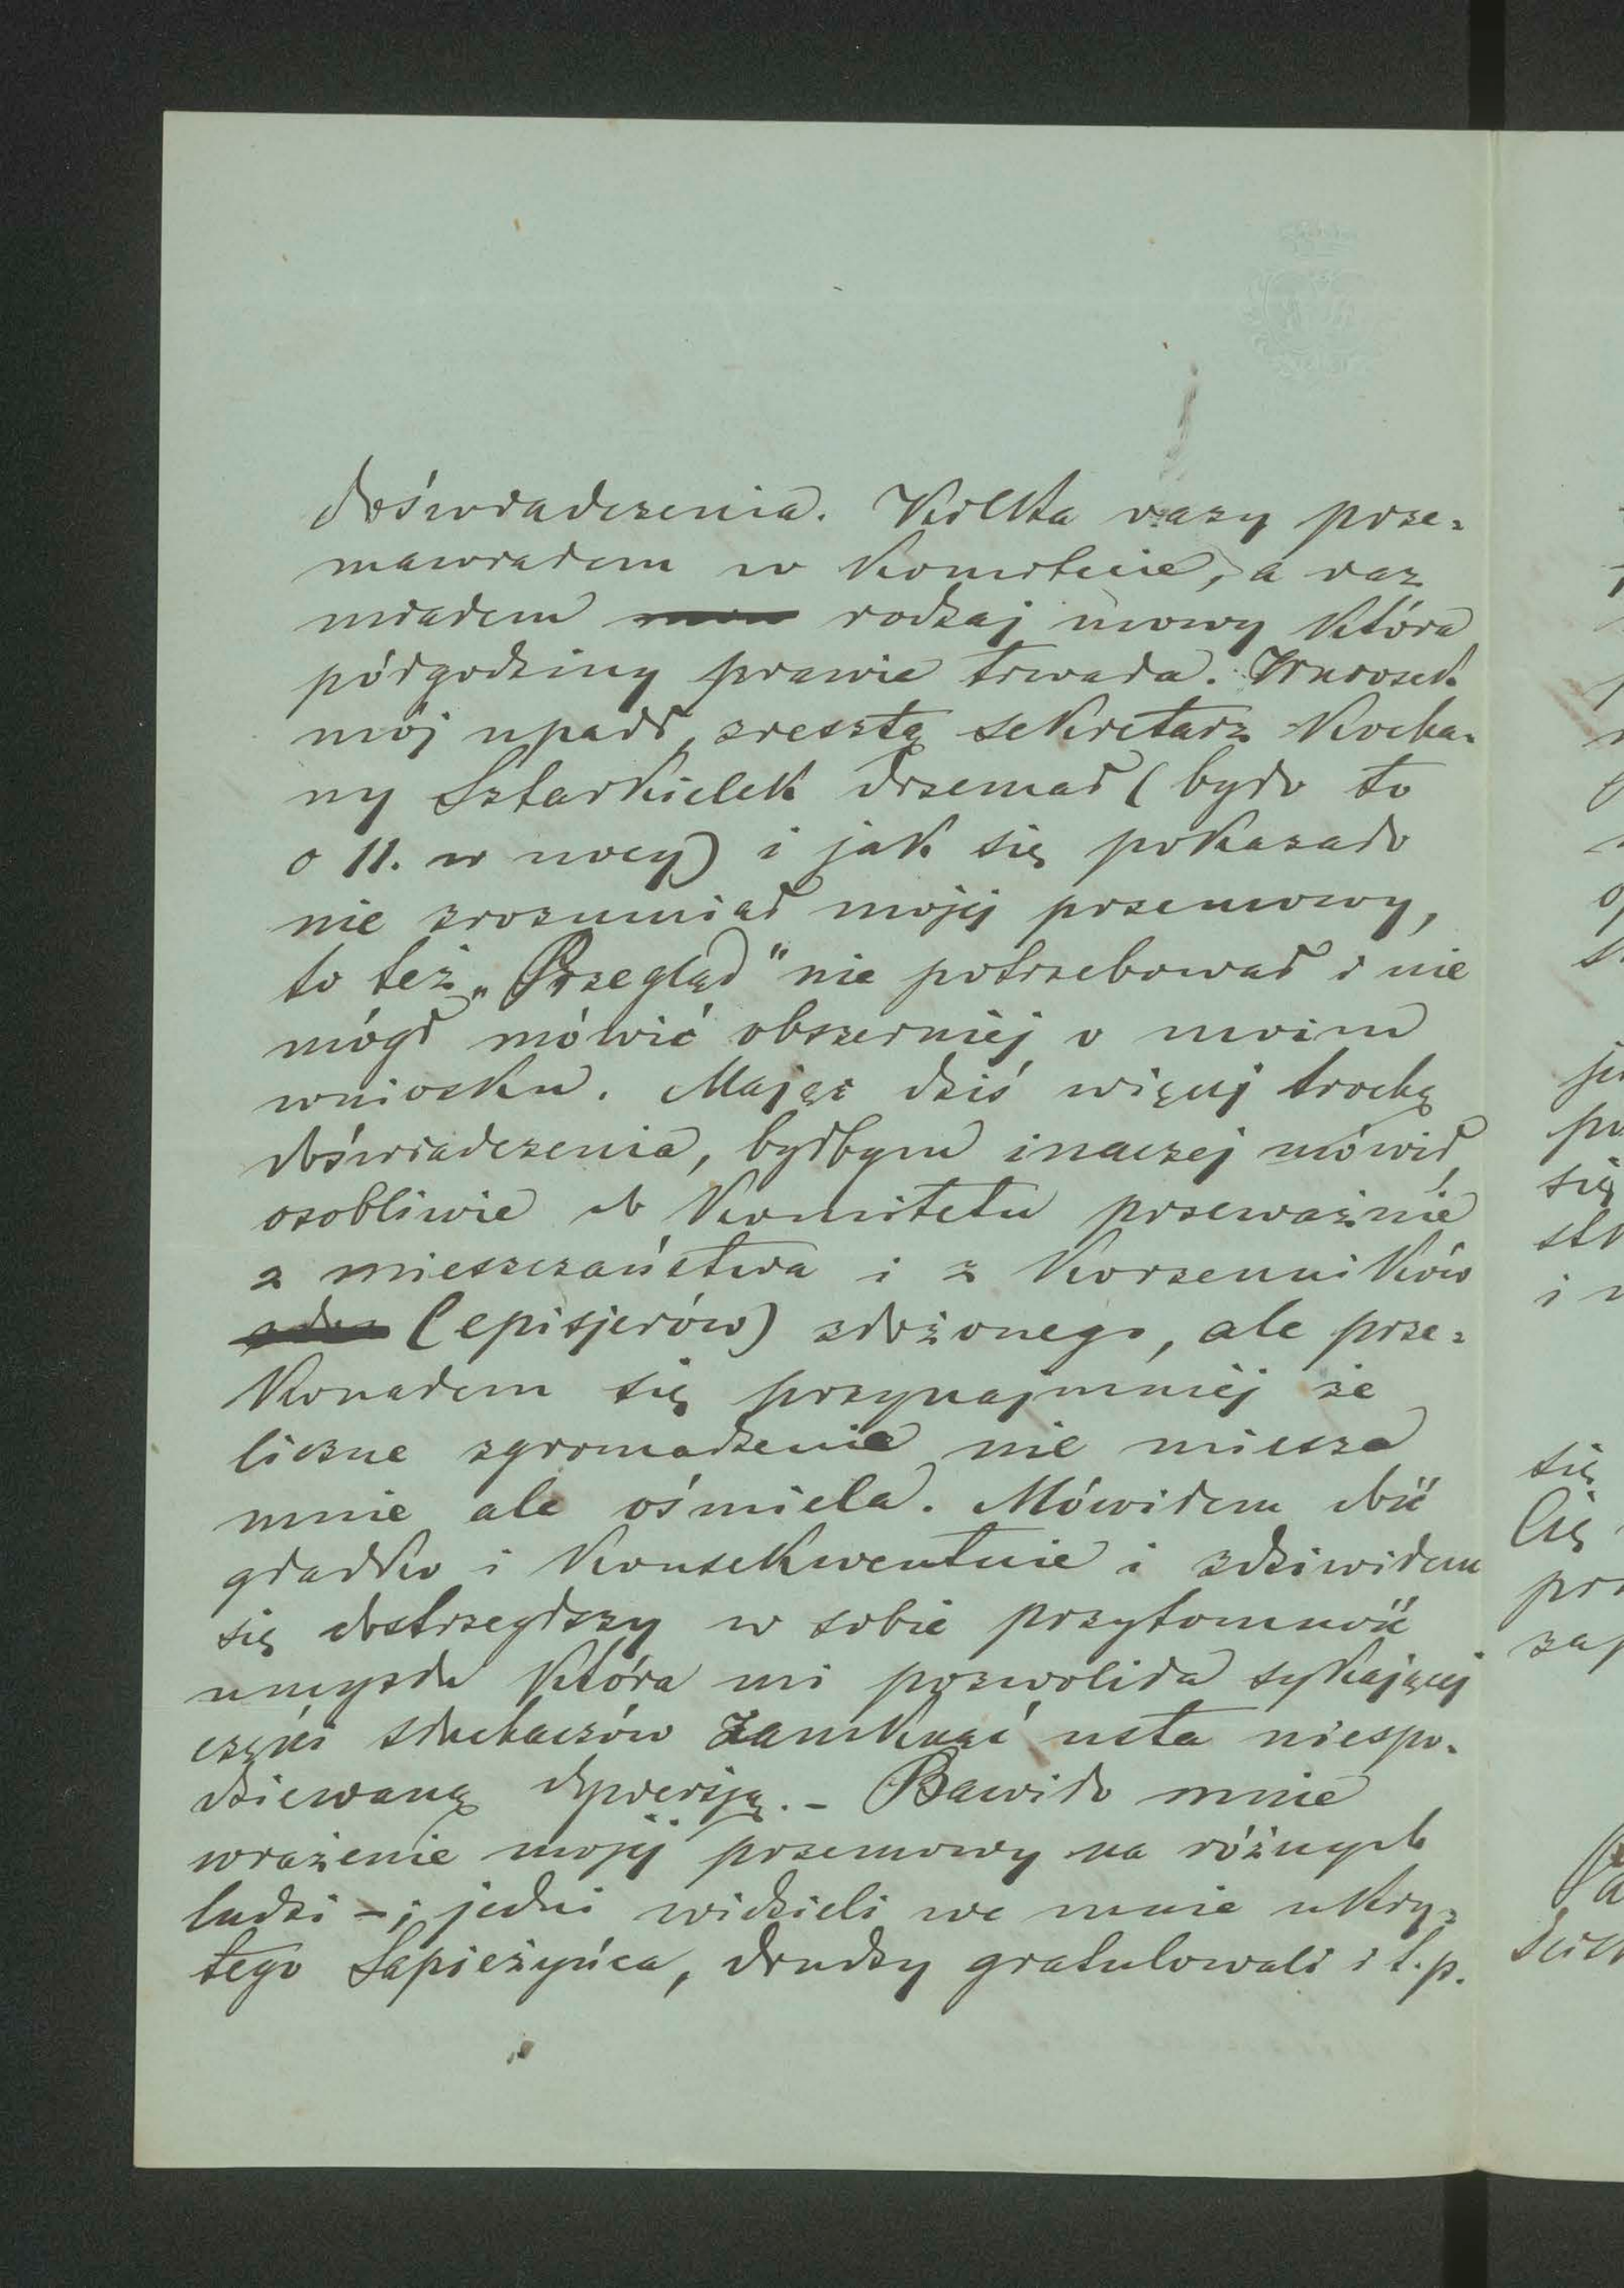 doświadczenia. Kilka razy prze=
mawiałem w Komitecie, a raz
miałem rodzaj mowy która
półgodziny prawie trwała. Wniosek
mój upadł, zresztą sekretarz Kocha=
ny Sztarkielek drzemał (było to
o 11. w nocy) i jak się pokazało
nie zrozumiał mojej przemowy,
to też „Przegląd" nie potrzebował i nie
mógł mówić obszerniej o moim
wniosku. Mając dziś więcej trochę
doświadczenia, byłbym inaczej mówił,
osobliwie do Komitetu przeważnie
z mieszczaństwa i z Korzenników
(episjerów) złożonego, ale prze=
konałem się przynajmniej że
liczne zgromadzenie nie miesza
mnie ale ośmiela. Mówiłem dość
gładko i Konsekwentnie i zdziwiłem
się dostrzegłszy w sobie przytomność
umysłu która mi pozwoliła sykającej
części słuchaczów zamknąć usta niespo=
dziewaną dywersją. – Bawiło mnie
wrażenie mojej przemowy na różnych
ludzi – ; jedni widzieli we mnie ukry=
tego Sapieżyńca, drudzy gratulowali i t.p.